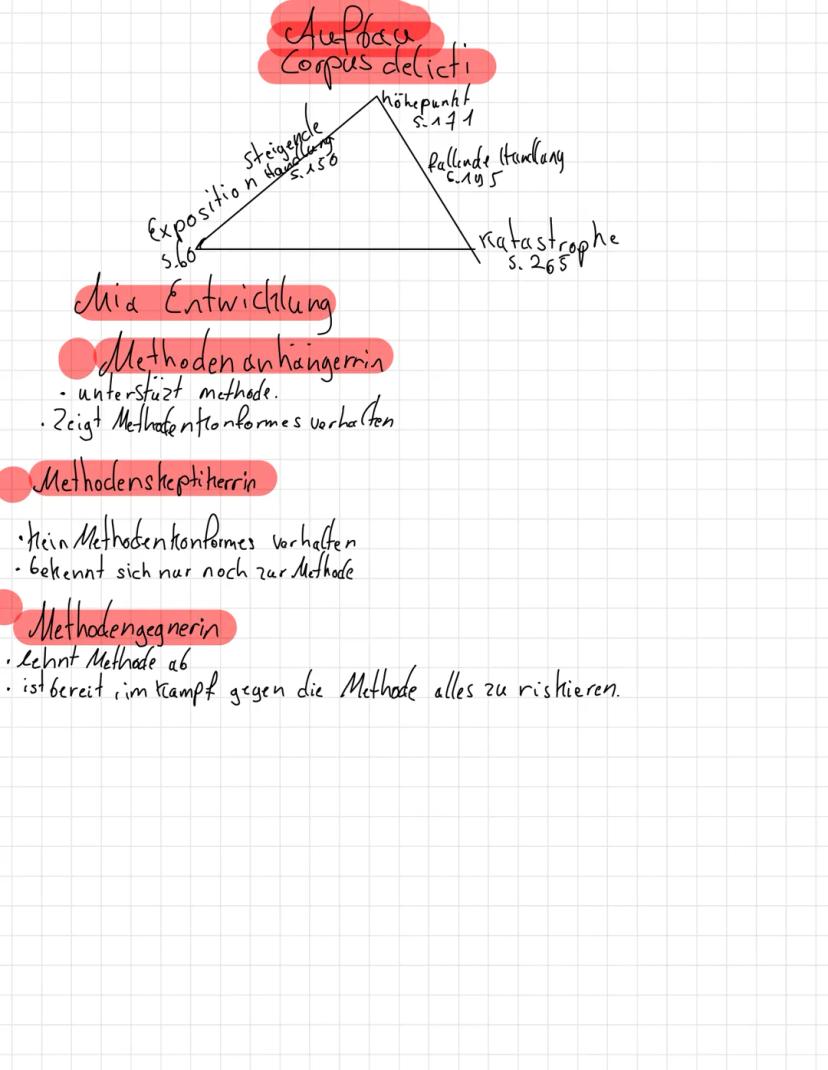 Aufbau
Corpus delicti
höhepunkt
S. 171
steigende
Handlung
S. 150
fallende Handlung
S. 195
Exposition
S. 60
Katastrophe
S. 265
Mia Entwicklung
Methodenanhängerrin
· unterstüzt methode.
· Zeigt Methodenkonformes verhalten
Methodenskeptikerrin
· kein Methodenkonformes verhalten
· bekennt sich nur noch zur Methode
Methodengegnerin
· lehnt Methode ab
· ist bereit, im Kampf gegen die Methode alles zu riskieren.